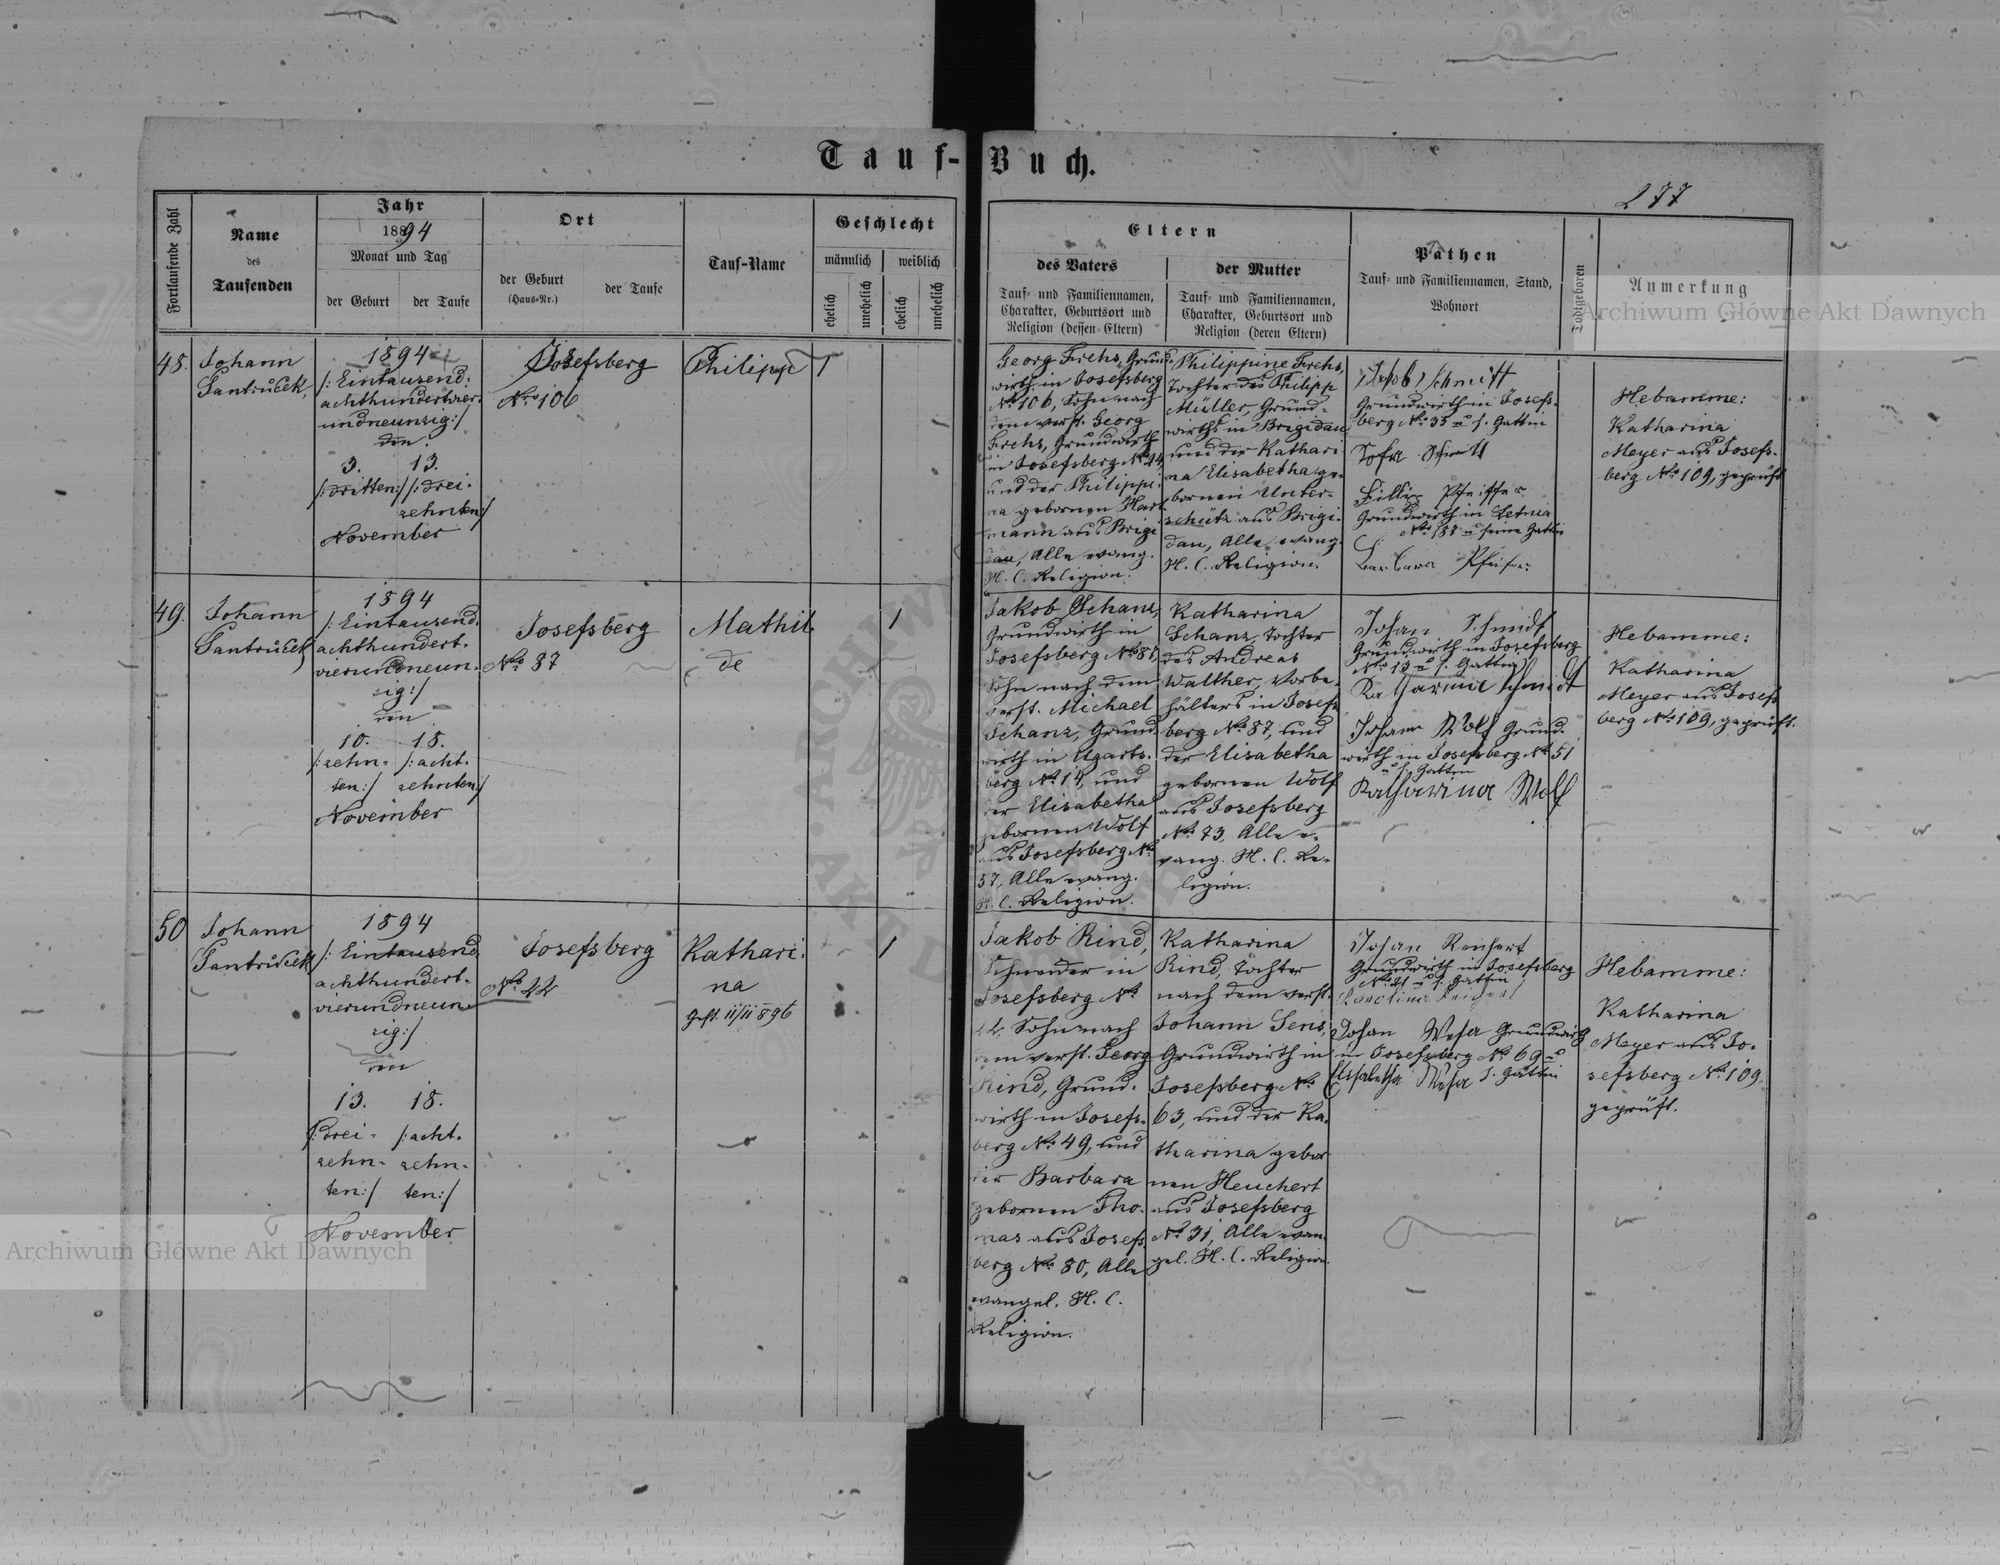 Tauf-Buch.
277
Fortlaufende Zahl
Name
des
Taufenden
Jahr
1894
Monat und Tag
der Geburt
der Taufe
Ort
der Geburt
(Haus-Nr.)
der Taufe
Tauf-Name
Geschlecht
männlich
weiblich
ehelich
unehelich
ehelich
unehelich
Eltern
des Vaters
Tauf- und Familiennamen,
Charakter, Geburtsort und
Religion (dessen Eltern)
der Mutter
Tauf- und Familiennamen,
Charakter, Geburtsort und
Religion (deren Eltern)
Pathen
Tauf- und Familiennamen, Stand,
Wohnort
Todtgeboren
Anmerkung
48.
Johann
Santruček,
1894
/: Eintausend:
achthundertvier-
undneunzig:/
den
3. 13.
/:dritten:/ /:drei-
zehnten:/
November
Josefsberg
No 106
Philipp
1
Georg Grund-
wirth in Josefsberg
No 106, Sohn nach
dem verst. Georg
Grundwirth
in Josefsberg No
und der Philippi-
na gebornen Hart-
mann aus Brigi-
dau, Alle evang.
H. C. Religion.
Philippine
Tochter des Philipp
Müller, Grund-
wirths in Brigidau
und der Kathari-
na Elisabetha ge-
bornen Unter-
schütz aus Brigi-
dau, Alle evang.
H. C. Religion.
Jakob Schmitt
Grundwirth in Josefs-
berg No 35 u s. Gattin
Sofia Schmitt
Fillip Pfeiffer
Grundwirth in Letnia
No u seine Gattin
Barbara Pfeifer
Hebamme:
Katharina
Meyer aus Josefs-
berg No 109, geprüft
49.
Johann
Santruček,
1894
/: Eintausend-
achthundert-
vierundneun-
zig:/
den
10. 18.
/:zehn- /:acht-
ten:/ zehnten:/
November
Josefsberg
No 87
Mathil-
de
1
Jakob Schanz,
Grundwirth in
Josefsberg No 87,
Sohn nach dem
verst. Michael
Schanz, Grund-
wirth in Ugarts-
berg No 14, und
der Elisabetha
gebornen Wolf
aus Josefsberg No
57, Alle evang.
H. C. Religion.
Katharina
Schanz, Tochter
des Andreas
Walther, Vorbe-
hälters in Josefs-
berg No 87, und
der Elisabetha
gebornen Wolf
aus Josefsberg
No 73, Alle e-
vang. H. C. Re-
ligion.
Johan Schmidt
Grundwirth in Josefsberg
No 13 u s. Gattin
Katharina Schmidt
Johann Wolf Grund-
wirth in Josefsberg No 51
u s. Gattin
Katharina Wolf
Hebamme:
Katharina
Meyer aus Josefs-
berg No 109, geprüft.
50
Johann
Santruček
1894
/: Eintausend
achthundert-
vierundneun-
zig:/
den
13. 18.
/:drei- /:acht-
zehn- zehn-
ten:/ ten:/
November
Josefsberg
No 22
Kathari-
na
Gest. 11/11 896
1
Jakob Rind,
Schneider in
Josefsberg No
22, Sohn nach
dem verst. Georg
Rind, Grund-
wirth in Josefs-
berg No 49, und
der Barbara
gebornen Tho-
mas aus Josefs-
berg No 80, Alle
evangel. H. C.
Religion.
Katharina
Rind, Tochter
nach dem verst.
Johann Sens,
Grundwirth in
Josefsberg No
63, und der Ka-
tharina gebor-
nen Heuchert
aus Josefsberg
No 31, Alle evan-
gel. H. C. Religion.
Johan Reichert
Grundwirth in Josefsberg
No 21 u s. Gattin
Karolina Reichert
Johan Wesa Grundwirth
in Josefsberg No 69 u
Elisabetha Wesa s. Gattin
Hebamme:
Katharina
Meyer aus Jo-
sefsberg No 109
geprüft.
Archiwum Główne Akt Dawnych
Archiwum Główne Akt Dawnych